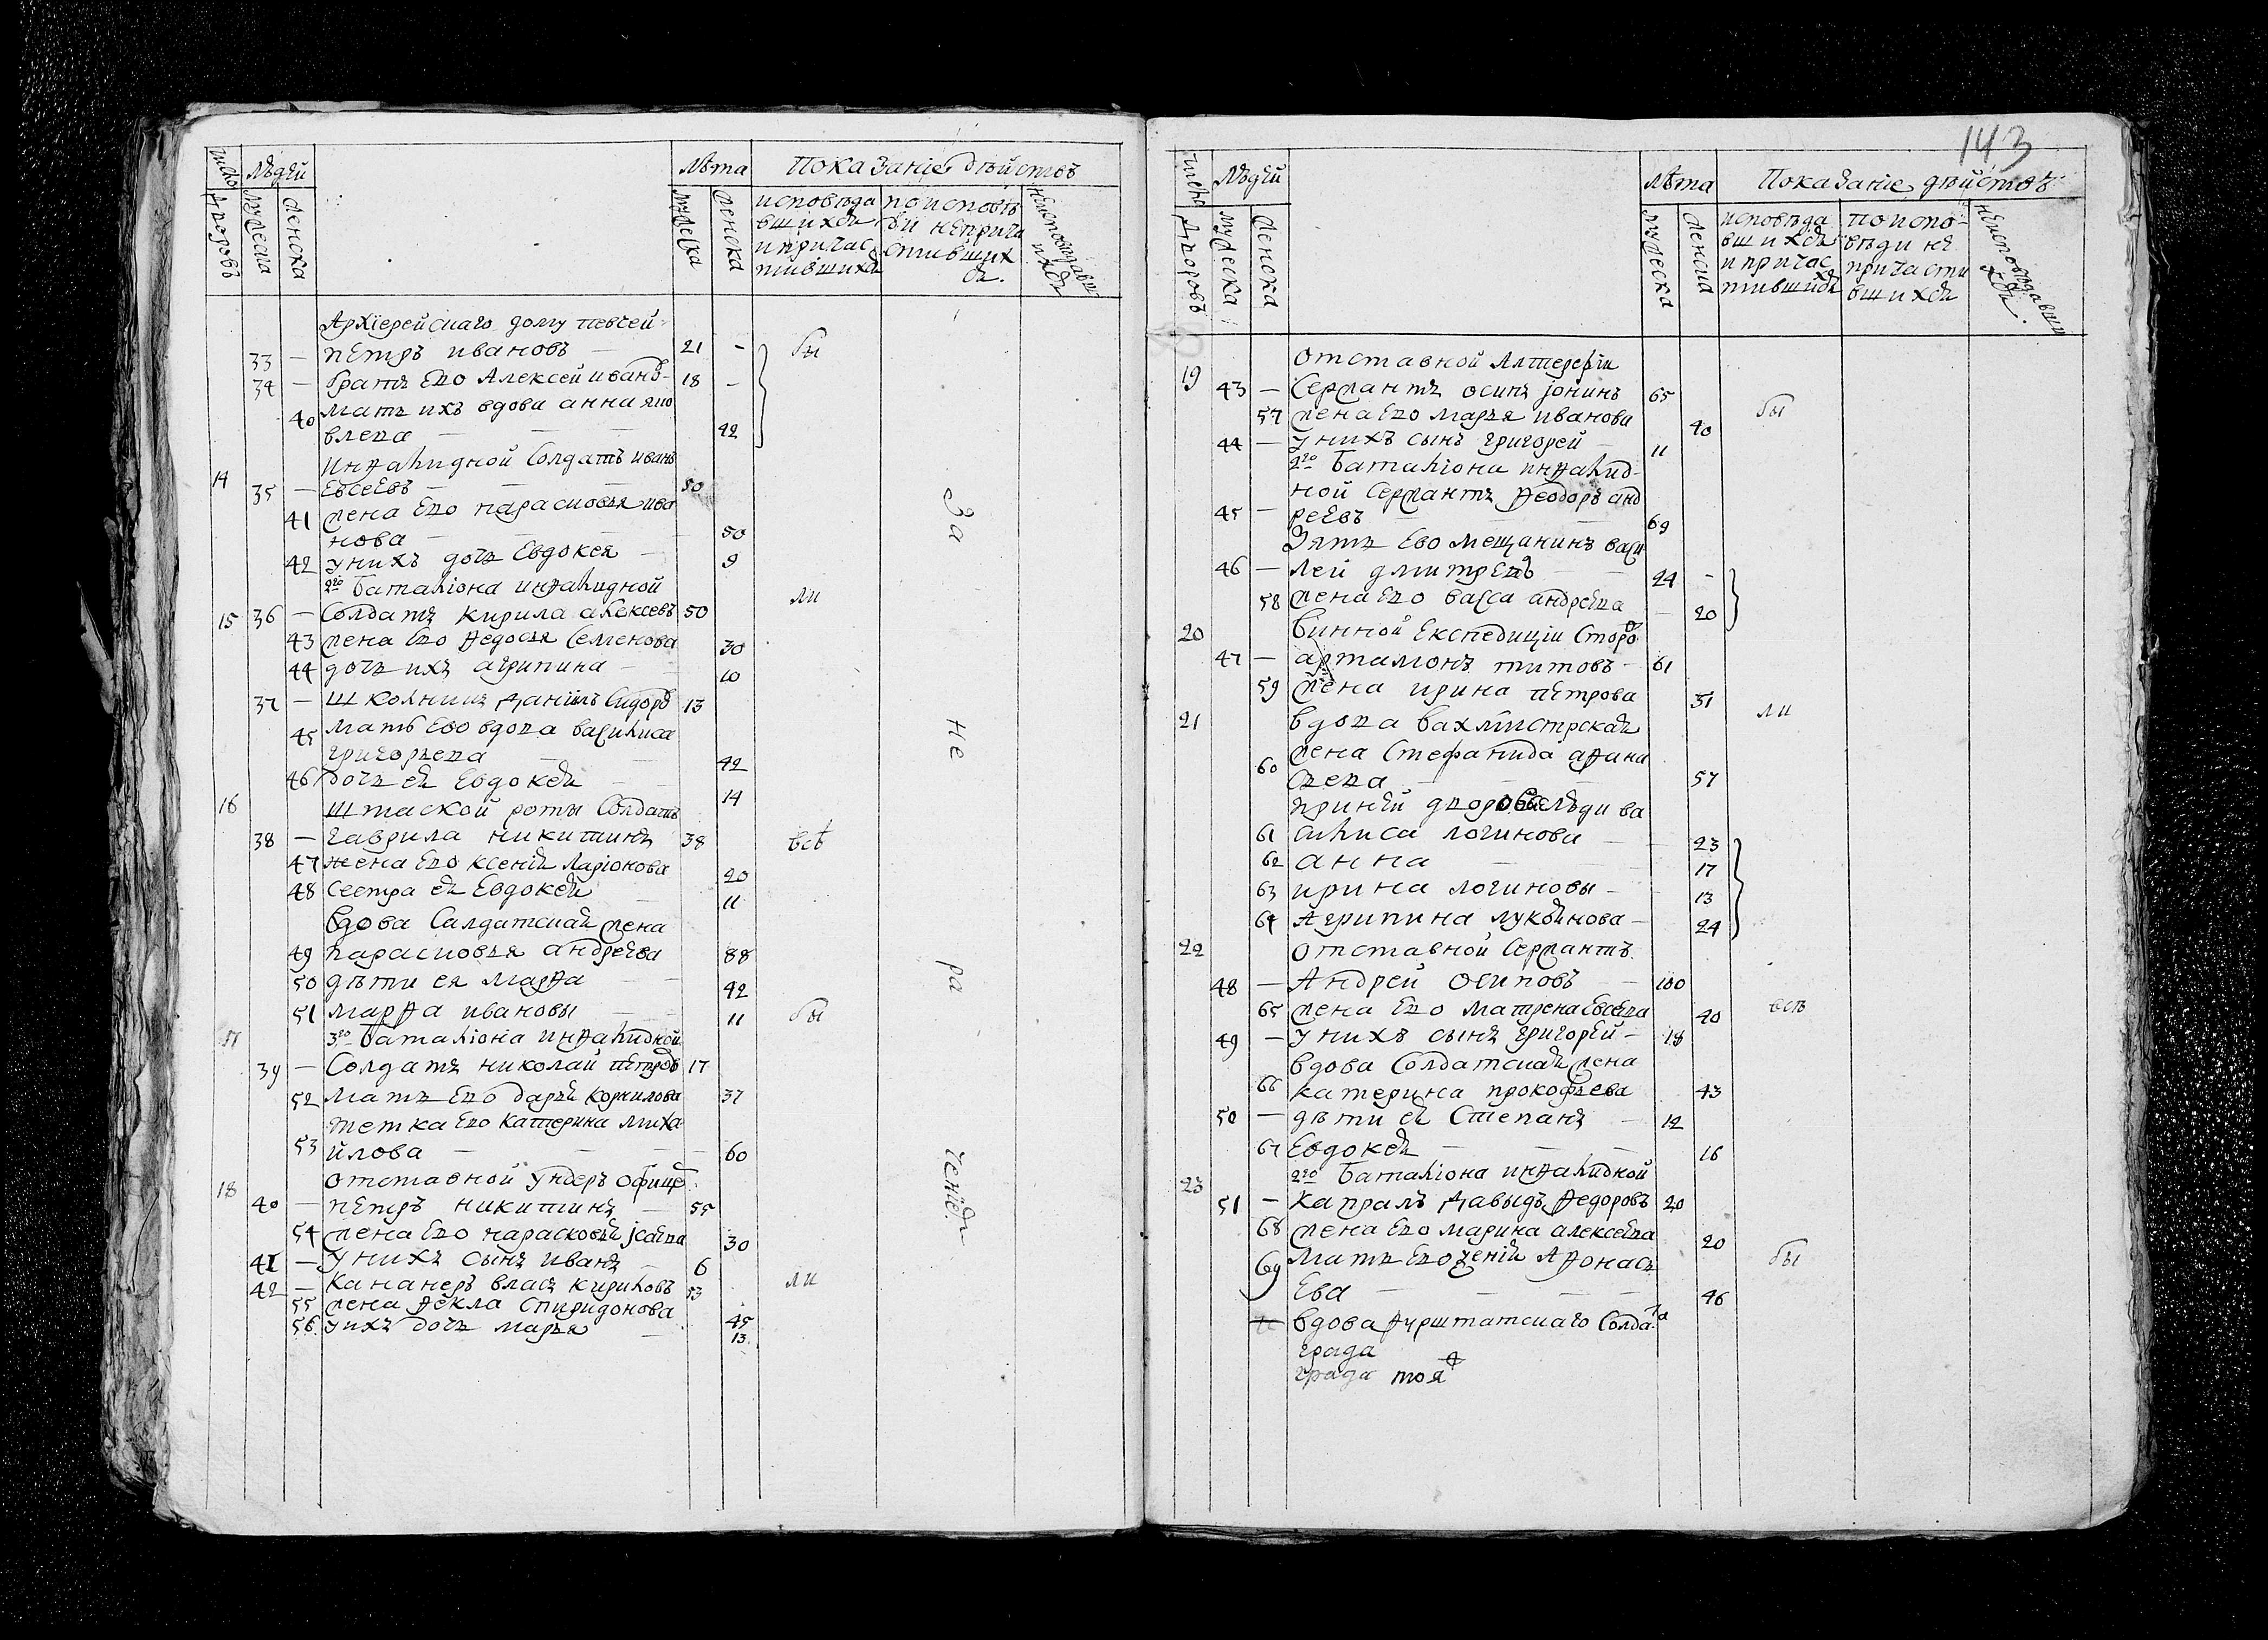 число дворовъ
людей
мужеска
женска
лѣта
мужеска
женска
показаніе дѣйствъ
исповѣда
вшихся
и причас
тившихся
по исповѣ
ди неприча
стивших
ся.
неисповѣдавш
ихся
Архіерейскаго дому певчей
33 — петръ ивановъ — 21 -
34 — братъ его Алексей ивано- 18 -
мать ихъ вдова анна яко
40 влева — — — 42
бы
инвалидной солдатъ иванъ
14 35 — Евсеевъ — — — 50
41 жена Его парасковья ива
нова — — — 50
42 у нихъ дочь Евдокея — 9
2го баталіона инвалидной
15 36 — солдатъ кирила алексевъ 50
ли
43 жена Его Федосья Семенова 30
44 дочь ихъ агрипина — 10
37 — школникъ даніилъ Сидоро 13
мать Ево вдова василиса
45 григорьева — — 42
46 дочь ея Евдокея — 14
16 штаской роты Солдатъ
38 — гаврила никитинъ 38
всѣ
47 жена Его ксенія ларіонова 20
48 сестра ея Евдокея — 11
вдова Салдатская жена
49 парасковья андреева 88
50 дѣти ея марфа — — 42
51 марфа ивановы — — 11
бы
17 3го баталіона инвалидной
39 — Солдатъ николай петровъ 17
52 мать Его дарья корнилова 37
тетка Его катерина миха
53 йлова — — — 60
18 отставной ундеръ офице
40 — петръ никитинъ — 55
54 жена Его парасковья 30
41 — у нихъ сынъ иванъ — 6
42 — Кананеръ власъ кириловъ 53
ли
55 жена фекла спиридонова 45
56 у ихъ дочь марья — 13
За
не
ра
ченіе.
143
число дворовъ
людей
мужеска
женска
лѣта
мужеска
женска
Показаніе дѣйствъ
исповѣда
вшихся
и причас
тившихся
по испо-
вѣди не
причасти
вшихся
неисповѣдавши
хся.
отставной Алтерели
19 43 — Сержантъ осипъ іонинъ 65
57 жена Его марья иванова 40
бы
44 — у нихъ сынъ григорей — 11
2го баталіона инвалид-
ной Сержантъ Феодоръ анд
45 — реевъ — — — 69
Зять Ево мещанинъ васи
46 — лей дмитревъ — — 24 -
58 жена Его васса андреева — 20
20 винной Експедиціи Сторо
47 — артамонъ титовъ — 61
59 жена ирина петрова 31
21 вдова вахмистрская
ли
жена Стефанида афана
60 сьева — — — 57
василиса логинова
61 23
62 анна — — 17
63 ирина логиновы — 13
64 Агрипина лукоянова — 24
22 отставной Сержантъ
48 — Андрей осиповъ — 100
65 жена Его матрена Евсеева 40
всѣ
49 — у нихъ сынъ григорей — 18
вдова Солдатская жена
66 катерина прокофьева 43
50 — дѣти ея Степанъ — 12
67 Евдокея — — — 16
23 2го баталіона инвалидной
51 — капралъ давыдъ Федоровъ 20
68 жена Его марина алексеева 20
69 мать Его Афонась
бы
Ева — — — 46
вдова фурштатскаго Солдата
града
града тоя